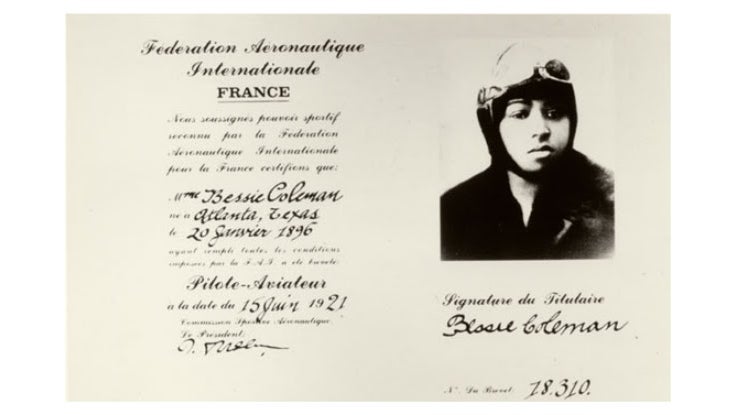 Fédération Aéronautique
Internationale
FRANCE
Nous soussignés pouvoir sportif
reconnu par la Fédération
Aéronautique Internationale
pour la France certifions que:
Mme Bessie Coleman
né à Atlanta, Texas
le 20 Janvier 1896
ayant rempli toutes les conditions
imposées par la F.A.I. a été breveté:
Pilote-Aviateur
à la date du 15 Juin 1921
Commission Sportive Aéronautique.
Le Président:
Signature du Titulaire
Bessie Coleman
No. Du Brevet 18.310.